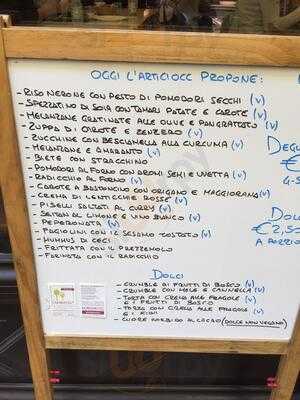 OGGI L'ARTICIOCC PROPONE:
- RISO NERONE CON PESTO DI POMODORI SECCHI (V)
- SPEZZATINO DI SOIA CON TAMARI PATATE E CAROTE (V)
- MELANZANE GRATINATE ALLE OLIVE E PANGRATTATO (V)
- ZUPPA DI CAROTE E ZENZERO (V)
- ZUCCHINE CON BESCIAMELLA ALLA CURCUMA (V)
- MELANZANE E AMARANTO (V)
- BIETE CON STRACCHINO
- POMODORI AL FORNO CON AROMI SEMI E UVETTA (V)
- RADICCHIO AL FORNO (V)
- CAROTE A BASTONCINO CON ORIGANO E MAGGIORANA (V)
- CREMA DI LENTICCHIE ROSSE (V)
- PISELLI SALTATI AL CURRY (V)
- SEITAN AL LIMONE E VINO BIANCO (V)
- PEPERONATA (V)
- FAGIOLINI CON IL SESAMO TOSTATO (V)
- HUMMUS DI CECI
- FRITTATA CON IL PREZZEMOLO
- FARINATA CON IL RADICCHIO
DOLCI
- CRUMBLE AI FRUTTI DI BOSCO (V)
- CRUMBLE CON MELE E CANNELLA (V)
- TORTA CON CREMA ALLE FRAGOLE E I FRUTTI DI BOSCO (V)
- TORTA CON CREMA ALLE FRAGOLE E I KIWI (V)
- CUORE MORBIDO AL CACAO (DOLCE NON VEGANO)
DEGU
€
DOL
€2,5
A PORZIO